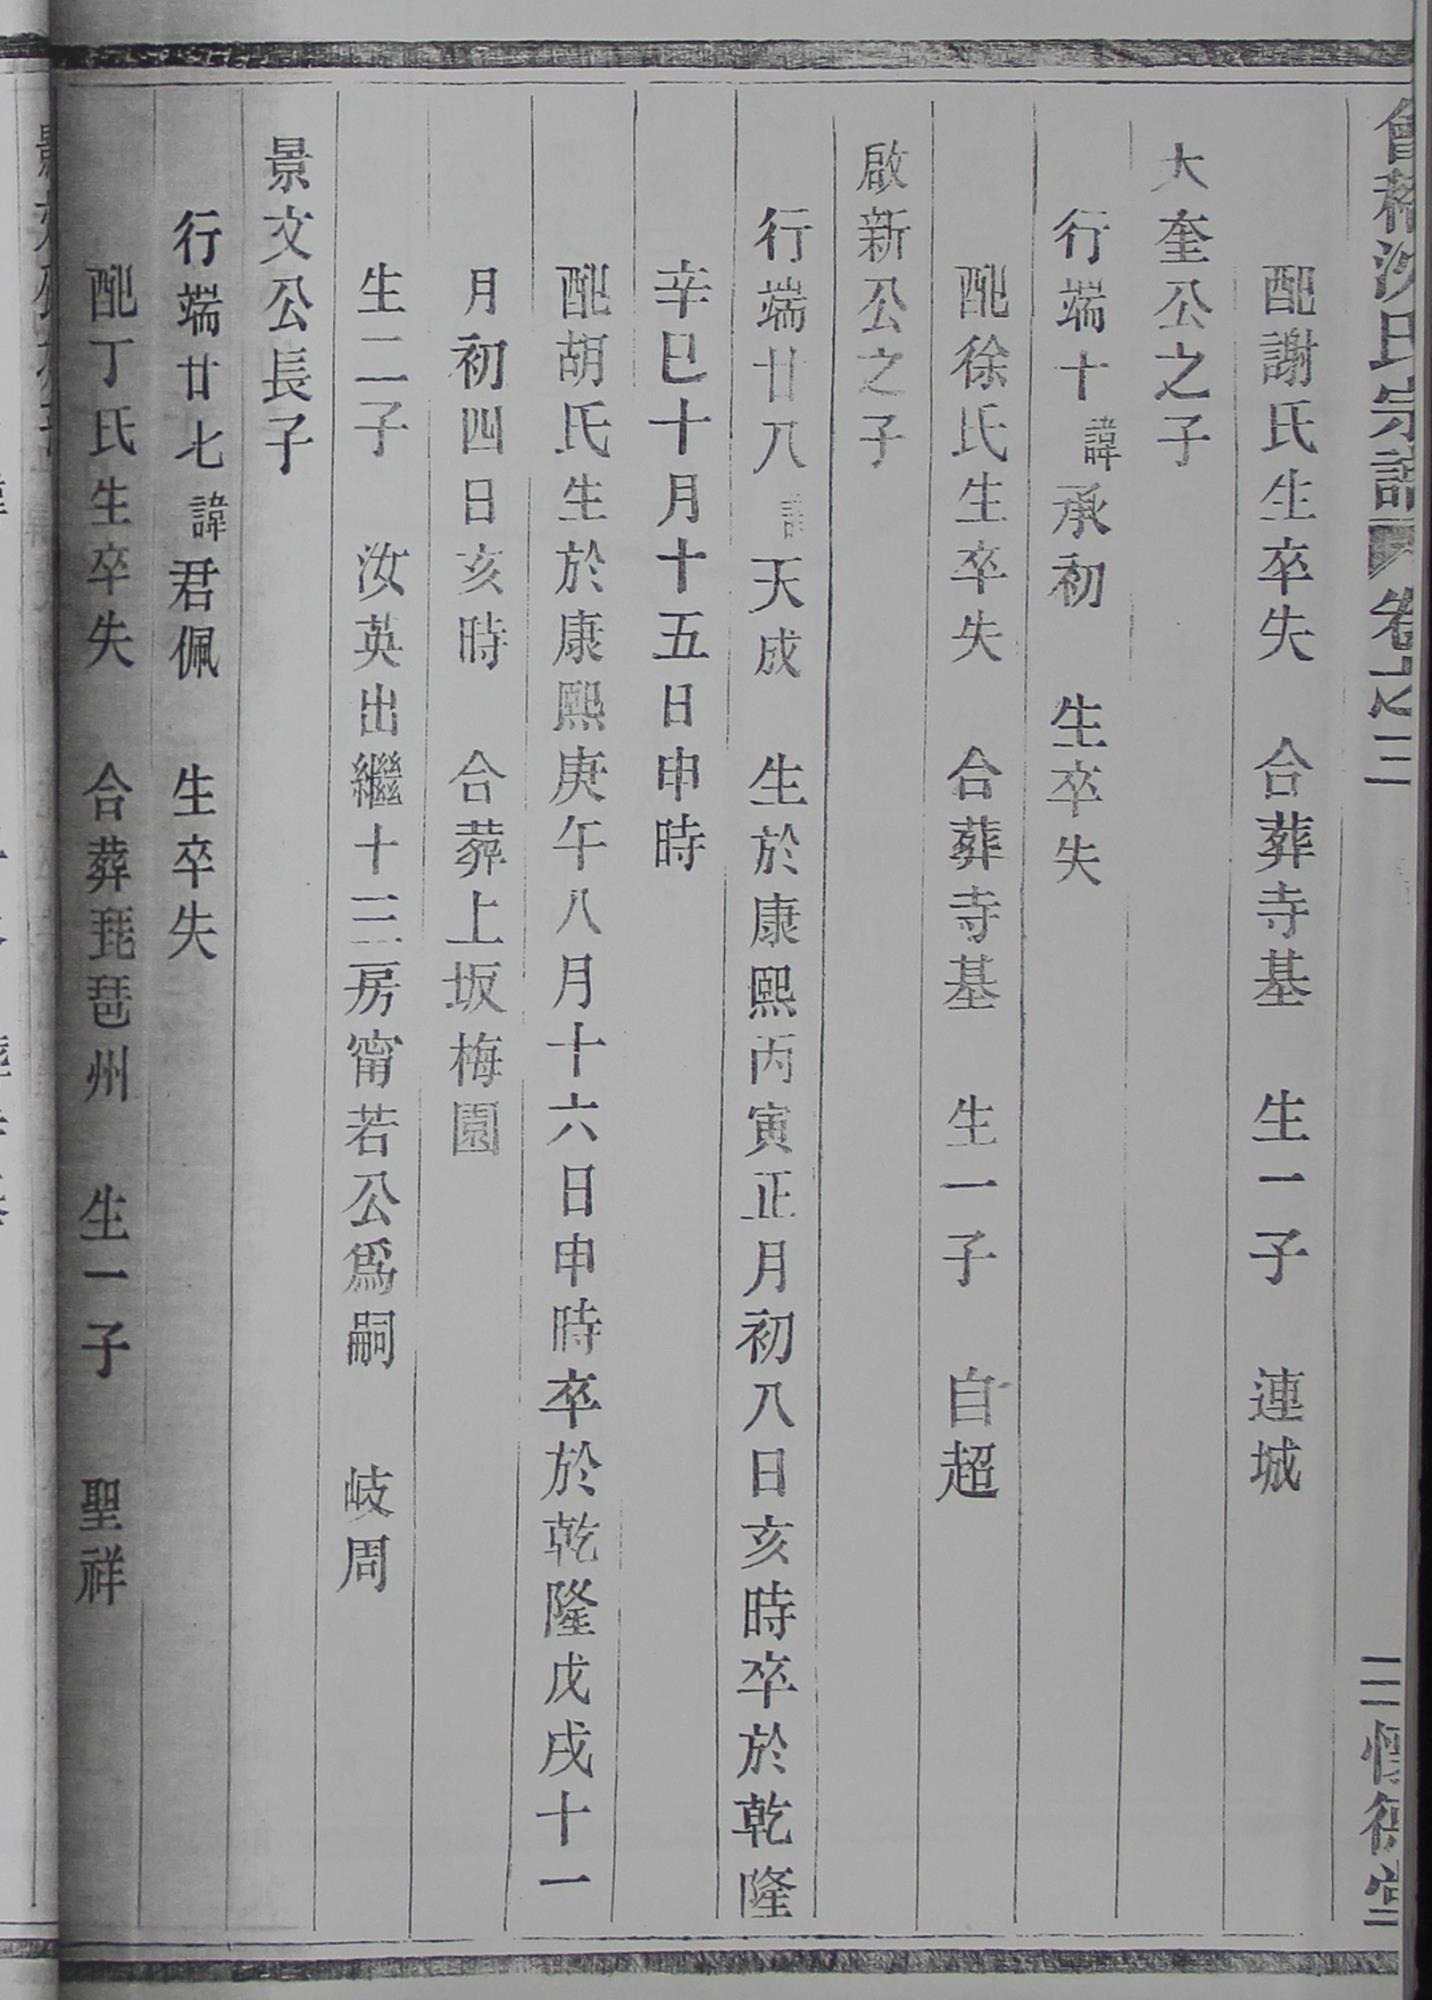 會稽沈氏宗譜 卷之三 二 懷德堂
配謝氏生卒失 合葬寺基 生一子 連城
大奎公之子
行端十 諱承初 生卒失
配徐氏生卒失 合葬寺基 生一子 自超
啟新公之子
行端廿八 諱天成 生於康熙丙寅正月初八日亥時卒於乾隆
辛巳十月十五日申時
配胡氏生於康熙庚午八月十六日申時卒於乾隆戊戌十一
月初四日亥時 合葬上坂梅園
生二子 汝英出繼十三房甯若公爲嗣 岐周
景文公長子
行端廿七 諱君佩 生卒失
配丁氏生卒失 合葬琵琶州 生一子 聖祥